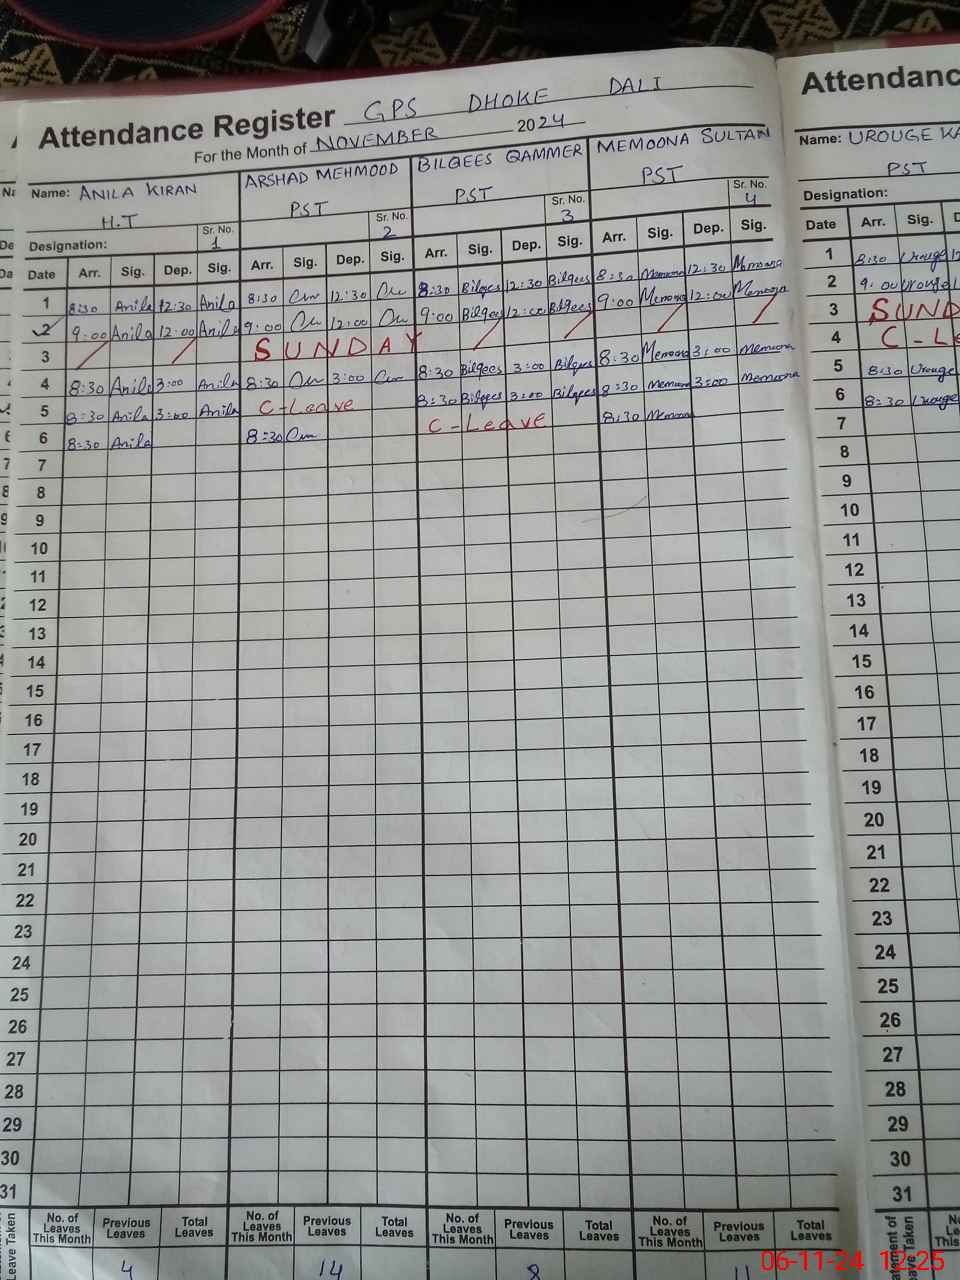 Attendance Register GPS DHOKE DALI
For the Month of NOVEMBER 2024
Name: ANILA KIRAN ARSHAD MEHMOOD BILQEES QAMMER MEMOONA SULTAN
H.T PST PST PST
Designation: Sr. No. 1 Sr. No. 2 Sr. No. 3 Sr. No. 4
Date Arr. Sig. Dep. Sig. Arr. Sig. Dep. Sig. Arr. Sig. Dep. Sig. Arr. Sig. Dep. Sig.
1 8:30 Anila 12:30 Anila 8:30 12:30 8:30 Bilqees 12:30 Bilqees 8:30 Memoona 12:30 Memoona
2 9:00 Anila 12:00 Anila 9:00 12:00 9:00 Bilqees 12:00 Bilqees 9:00 Memoona 12:00 Memoona
3 SUNDAY
4 8:30 Anila 3:00 Anila 8:30 3:00 8:30 Bilqees 3:00 Bilqees 8:30 Memoona 3:00 Memoona
5 8:30 Anila 3:00 Anila C-Leave 8:30 Bilqees 3:00 Bilqees 8:30 Memoona 3:00 Memoona
6 8:30 Anila 8:30 C-Leave 8:30 Memoona
7
8
9
10
11
12
13
14
15
16
17
18
19
20
21
22
23
24
25
26
27
28
29
30
31
Leave Taken No. of Leaves This Month Previous Leaves Total Leaves No. of Leaves This Month Previous Leaves Total Leaves No. of Leaves This Month Previous Leaves Total Leaves No. of Leaves This Month Previous Leaves Total Leaves
4 14 8 11
Attendanc
Name: UROUGE KA
PST
Designation:
Date Arr. Sig. D
1 8:30 Urouge 12
2 9:00 Urouge 1
3 SUND
4 C-Le
5 8:30 Urouge
6 8:30 Urouge
7
8
9
10
11
12
13
14
15
16
17
18
19
20
21
22
23
24
25
26
27
28
29
30
31
06-11-24 12:25